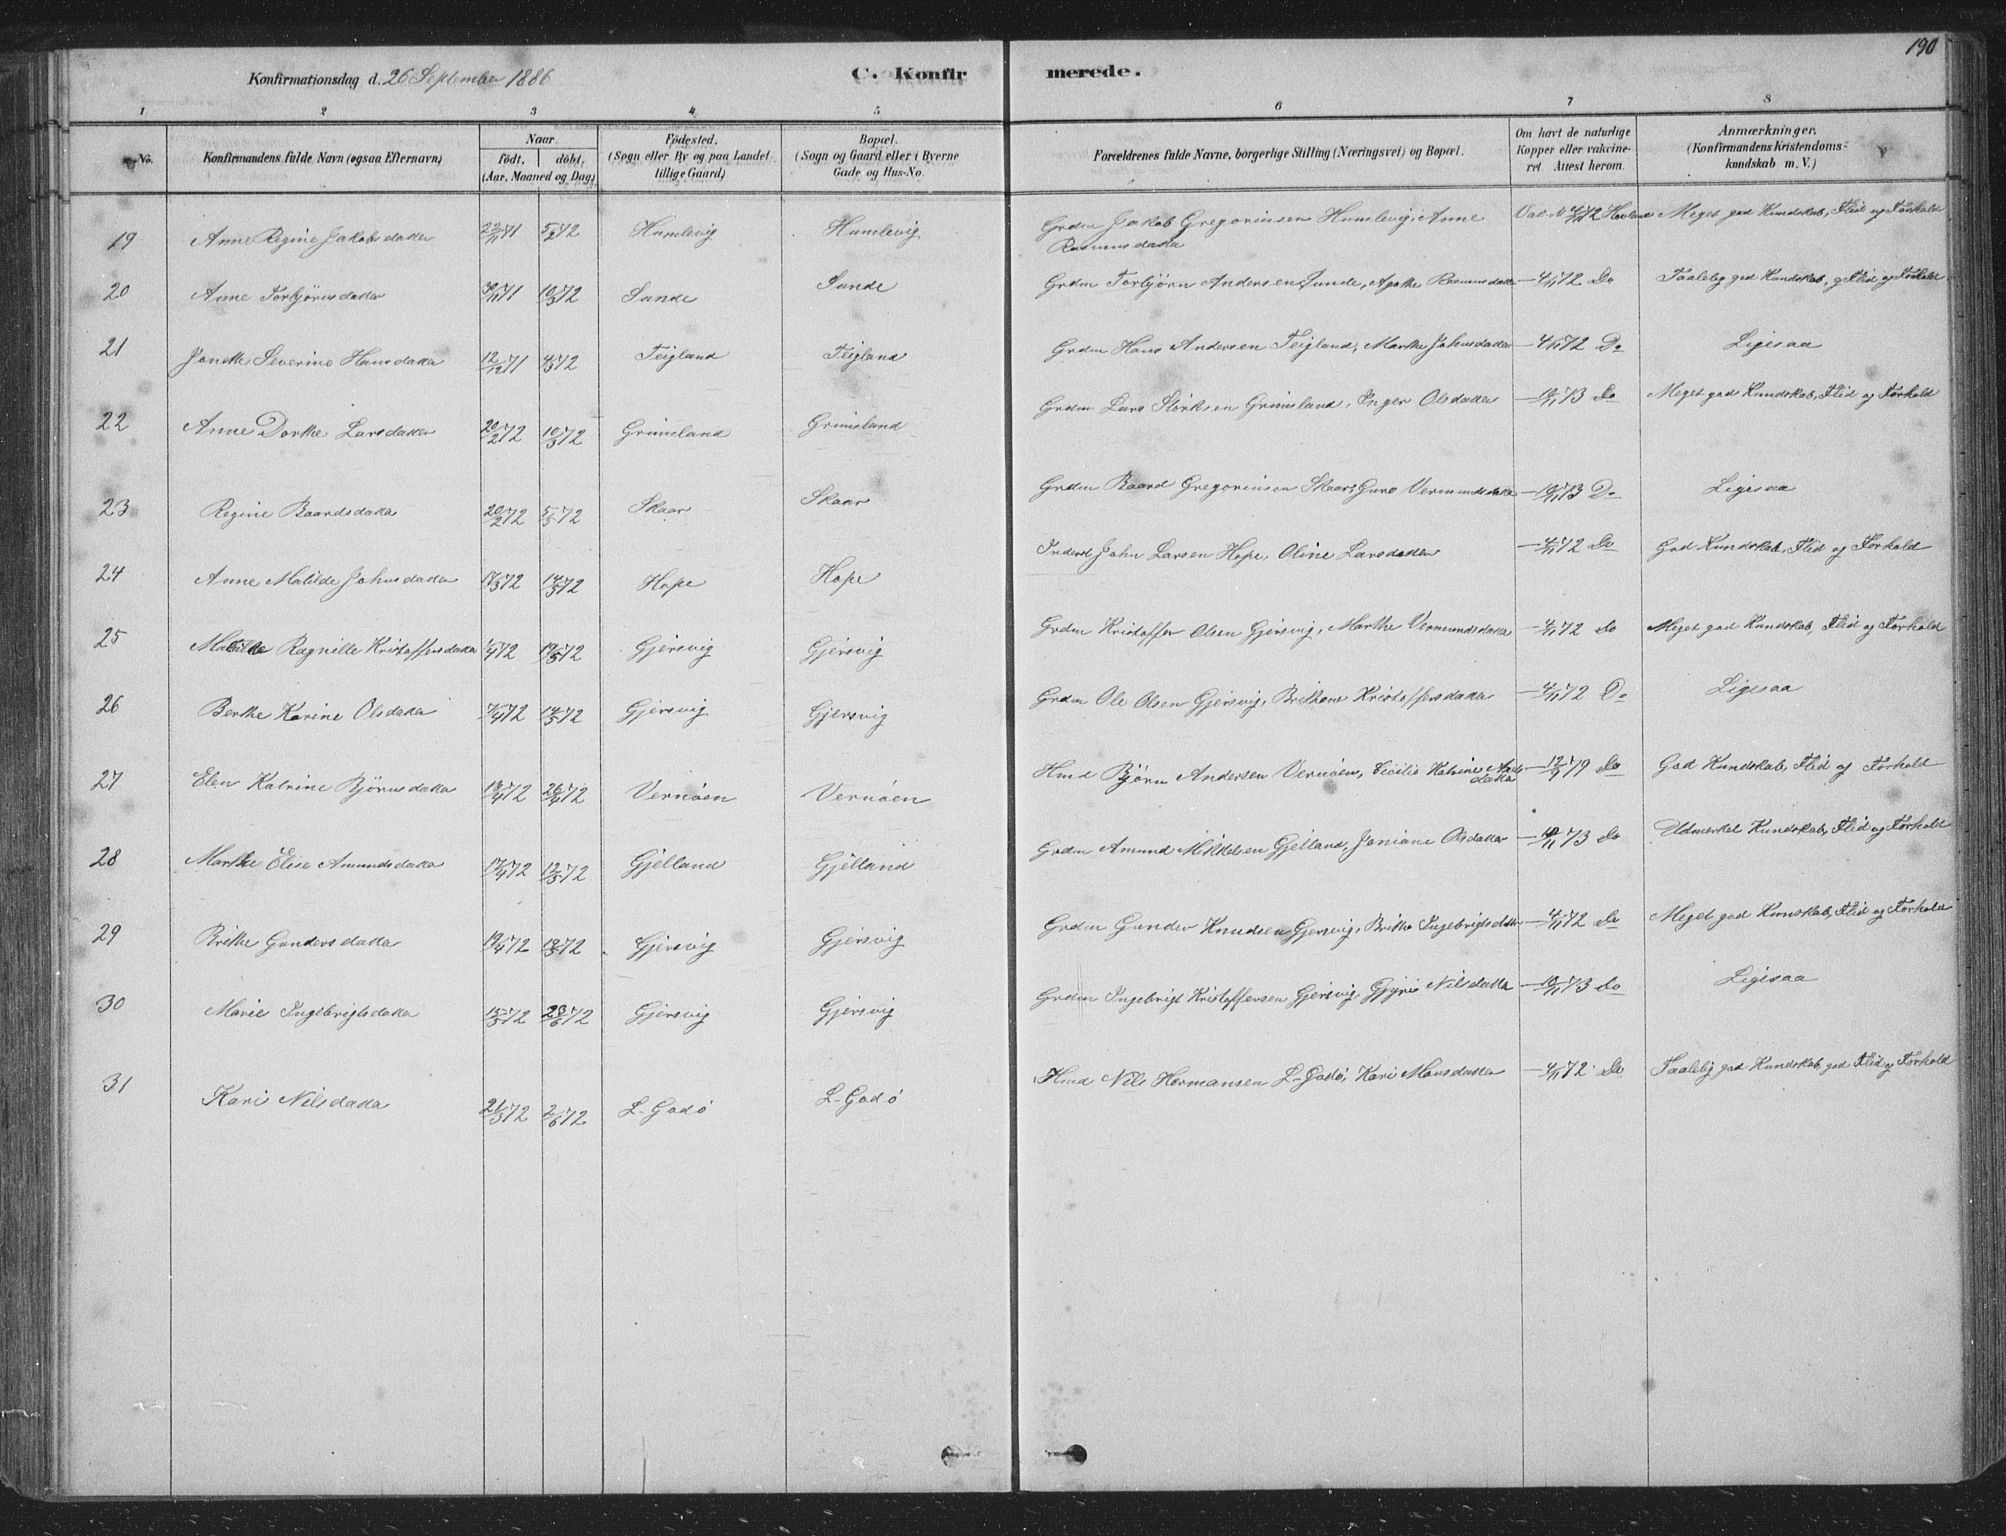 190
Konfirmationsdag d. 26 September 1886 C. Konfir merede.
1 2 3 4 5 6 7 8
No. Konfirmandens fulde Navn (ogsaa Efternavn) Naar født, døbt, (Aar, Maaned og Dag) Födested. (Sogn eller By og paa Landet tillige Gaard) Bopæl. (Sogn og Gaard eller i Byerne Gade og Hus-No. Forældrenes fulde Navne, borgerlige Stilling (Næringsvei) og Bopæl. Om havt de naturlige Kopper eller vakcineret. Attest herom. Anmærkninger. (Konfirmandens Kristendomskundskab m. V.)
19 Anne Regine Jakobsdatter 22/11 71 5/2 72 Humlevig Humlevig Grdm Jakob Gregoriusen Humlevig, Anne Rasmusdatter Vak. 4/11 72 Meget god Kundskab, Flid og Forhold
20 Anne Torbjørnsdatter 30/11 71 10/3 72 Sunde Sunde Grdm Torbjørn Andersen Sunde, Agathe Rasmusdatter — 4/11 72 Do Taalelig god Kundskab, g. Flid og Forhold
21 Janette Severine Hansdatter 12/12 71 4/3 72 Teigland Teigland Grdm Hans Andersen Teigland, Marthe Johnsdatter — 4/11 72 Do Ligesaa
22 Anne Dorthe Larsdatter 20/2 72 10/3 72 Grimsland Grimsland Grdm Lars Størksen Grimsland, Inger Olsdatter — 10/11 73 Do Meget god Kundskab, Flid og Forhold
23 Regine Baardsdatter 20/2 72 5/5 72 Skaar Skaar Grdm Baard Gregoriusen Skaar, Guro Vermundsdatter — 10/11 73 Do Ligesaa
24 Anne Matilde Johnsdatter 17/3 72 14/5 72 Hope Hope Inderst John Larsen Hope, Oline Larsdatter — 4/11 72 Do God Kundskab, Flid og Forhold
25 Matilde Ragnilte Kristoffersdatter 1/4 72 19/5 72 Gjersvig Gjersvig Grdm Kristoffer Olsen Gjersvig, Marthe Vermundsdatter — 4/11 72 Do Meget god Kundskab, Flid og Forhold
26 Berthe Karine Olsdatter 7/4 72 14/5 72 Gjersvig Gjersvig Grdm Ole Olsen Gjersvig, Brithane Kristoffersdatter — 4/11 72 Do Ligesaa
27 Elen Katrine Bjørnsdatter 13/4 72 26/4 72 Vernøen Vernøen Hmd Bjørn Andersen Vernøen, Cicilie Katrine datter — 12/9 79 Do God Kundskab, Flid og Forhold
28 Marthe Elise Amundsdatter 17/4 72 12/5 72 Gjelland Gjelland Grdm Amund Mikkelsen Gjelland, Janiane Olsdatter — 10/11 73 Do Udmerket Kundskab, Flid og Forhold
29 Brithe Gundersdatter 19/4 72 19/5 72 Gjersvig Gjersvig Grdm Gunder Knudsen Gjersvig, Brithe Ingebrigtsdatter — 4/11 72 Do Meget god Kunskab, Flid og Forhold
30 Marie Ingebrigtsdatter 13/5 72 23/6 72 Gjersvig Gjersvig Grdm Ingebrigt Kristoffersen Gjersvig, Gjyri Nilsdatter — 10/11 73 Do Ligesaa
31 Kari Nilsdatter 21/5 72 2/6 72 L-Godø L-Godø Hmd Nils Hermansen L-Godø, Kari Monsdatter — 4/11 72 Do Taalelig god Kundskab, god Flid og Forhold